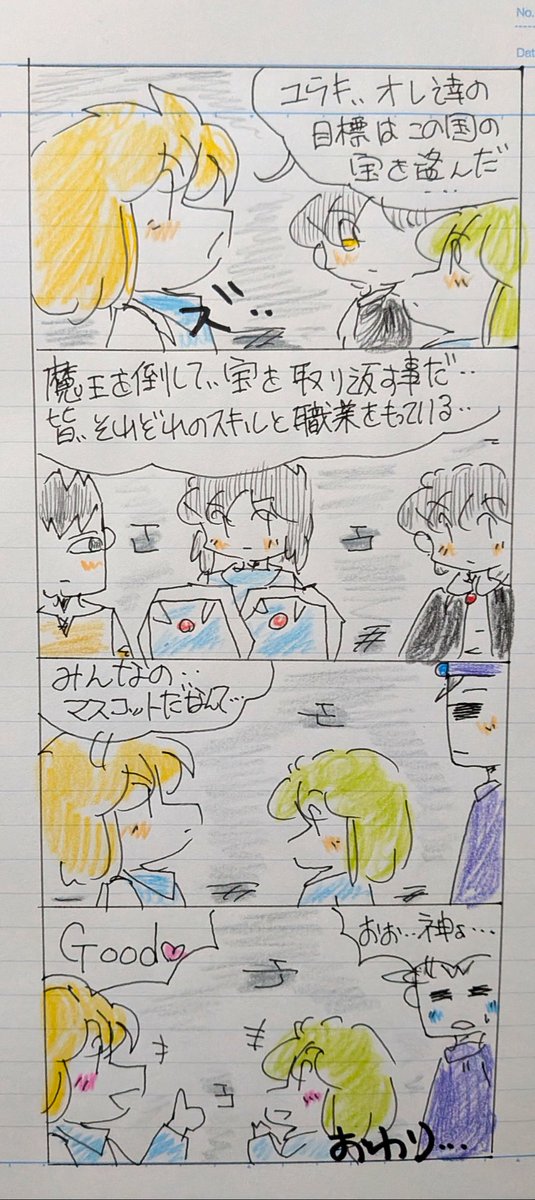 No.
Dat
ユラキ、オレ達の
目標はこの国の
宝を盗んだ
・・・
ズ・・
魔王を倒して、宝を取り返す事だ・・
皆、それぞれのスキルと職業をもっている・・
みんなの・・
マスコットだなんて・・
Good♡
おお・・神よ・・・
おわり・・・